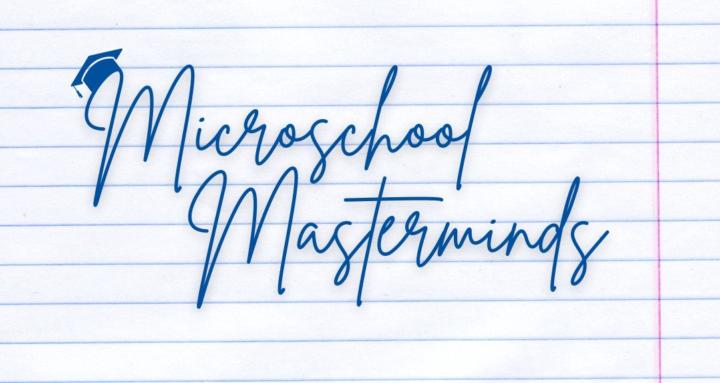 Microschool
Masterminds